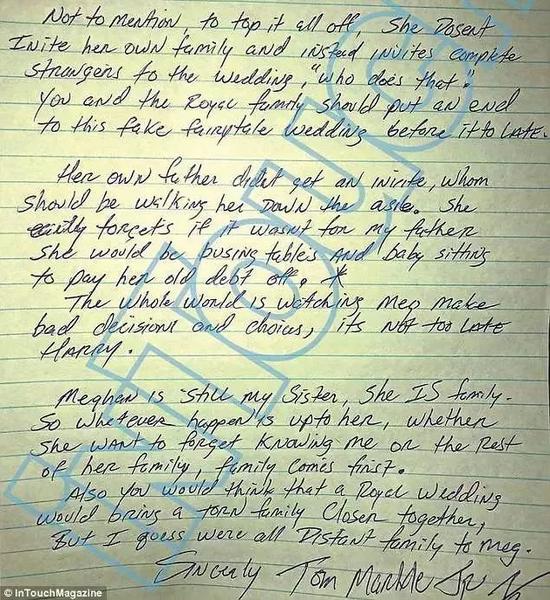 Not to mention, to top it all off, She Dosent
Inite her own family and instead invites complete
strangers to the wedding, "who does that".
You and the Royal family should put an end
to this fake fairytale wedding before it to LATE.
Her own father didnt get an invite, whom
should be walking her Down the asle. She
easily forgets if it wasnt for my father
she would be busing tables And baby sitting
to pay her old debt off. *
The whole world is watching Meg make
bad decisions and choices, its NOT too LATE
HARRY.
Meghan is still my Sister, She IS family.
So whatever happen is upto her, whether
she want to forget Knowing me or the Rest
of her family, family comes first.
Also you would think that a Royal Wedding
would bring a torn family Closer together,
But I guess were all Distant family to Meg.
Sincerly Tom Markle Jr
© InTouchMagazine